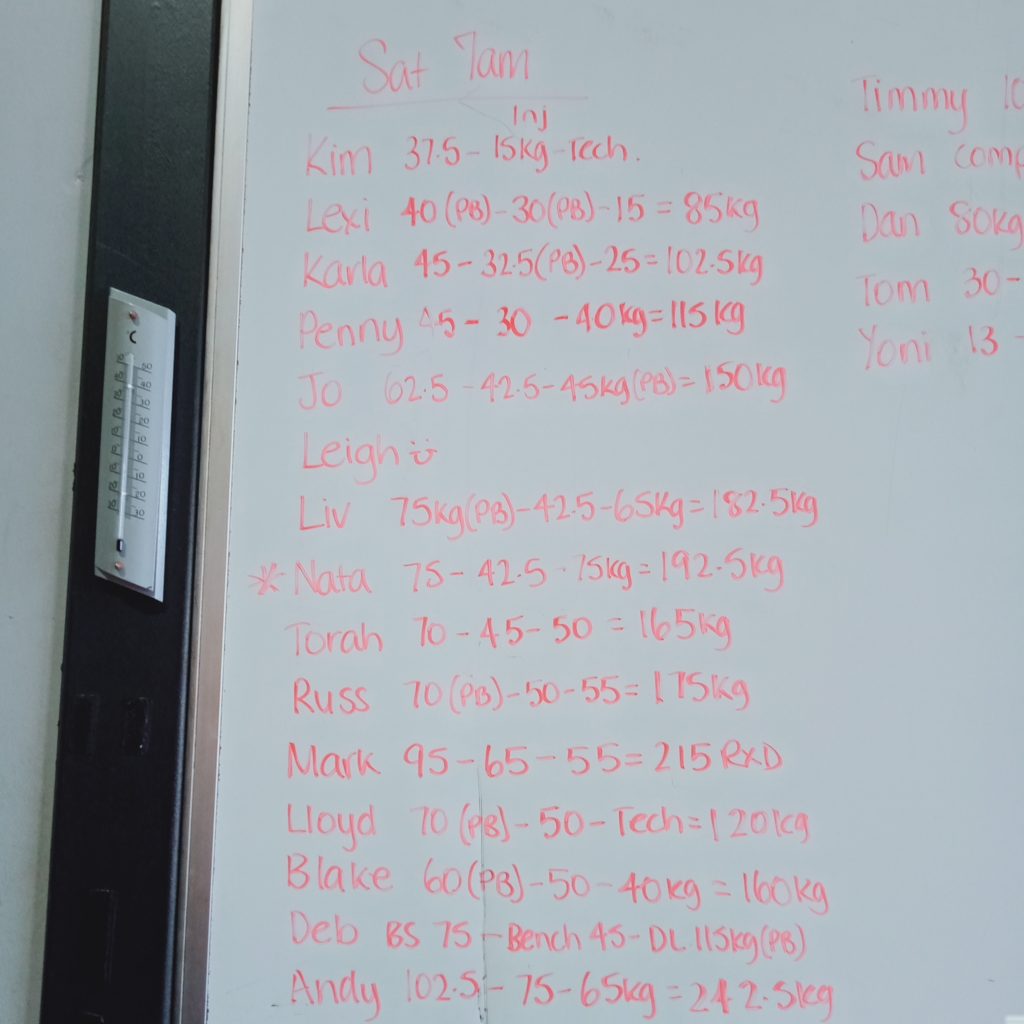 Sat 7am
Inj
Kim 37.5 - 15kg - Tech.
Lexi 40 (PB) - 30 (PB) - 15 = 85kg
Karla 45 - 32.5 (PB) - 25 = 102.5kg
Penny 45 - 30 - 40kg = 115kg
Jo 62.5 - 42.5 - 45kg (PB) = 150kg
Leigh
Liv 75kg (PB) - 42.5 - 65kg = 182.5kg
* Nata 75 - 42.5 - 75kg = 192.5kg
Torah 70 - 45 - 50 = 165kg
Russ 70 (PB) - 50 - 55 = 175kg
Mark 95 - 65 - 55 = 215 RXD
Lloyd 70 (PB) - 50 - Tech = 120kg
Blake 60 (PB) - 50 - 40kg = 160kg
Deb BS 75 - Bench 45 - DL 115kg (PB)
Andy 102.5 - 75 - 65kg = 242.5kg
Timmy
Sam
Dan 80kg
Tom 30 -
Yoni 13 -
C